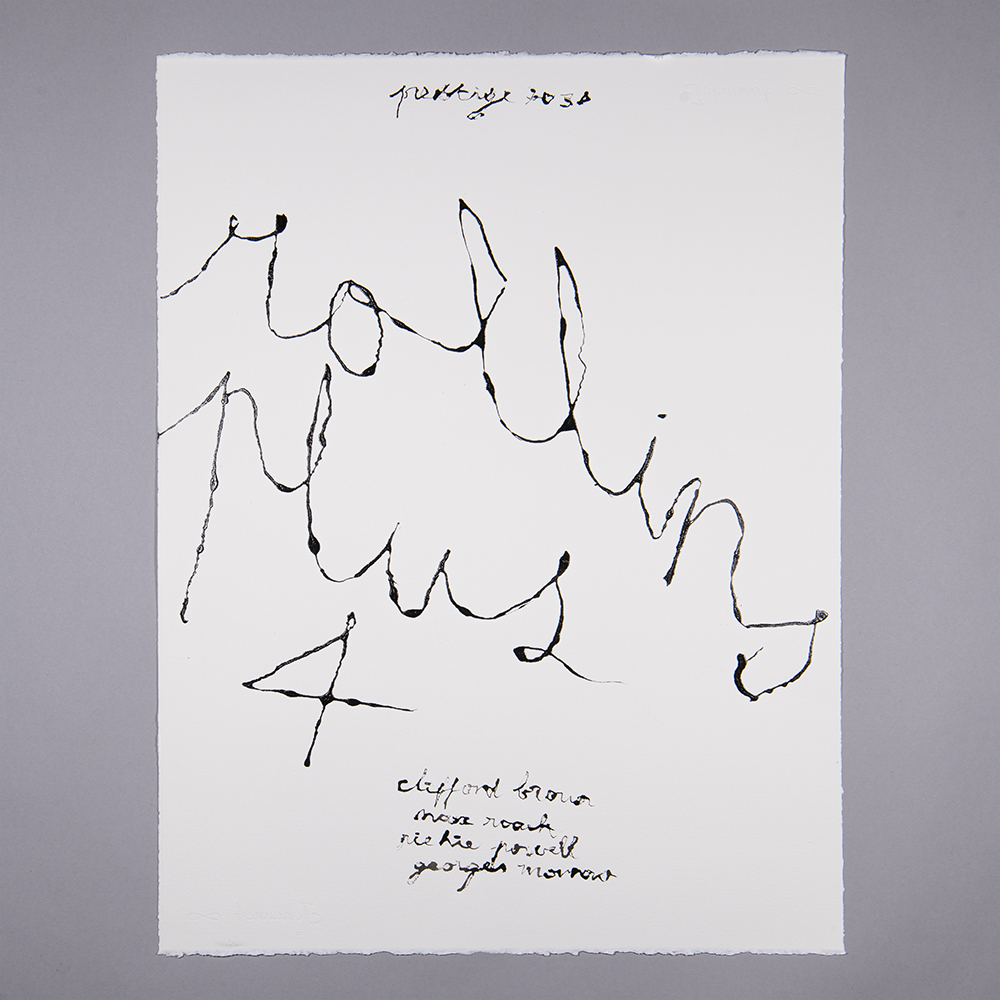 prestige 7038
rollins
plus
4
clifford brown
max roach
richie powell
georges morrow